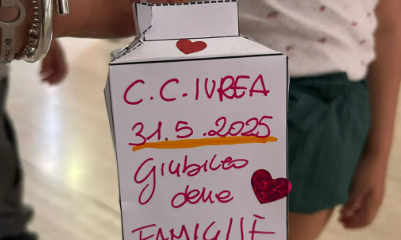 C.C. IVREA
31.5.2025
GIUBILEO
delle
FAMIGLIE